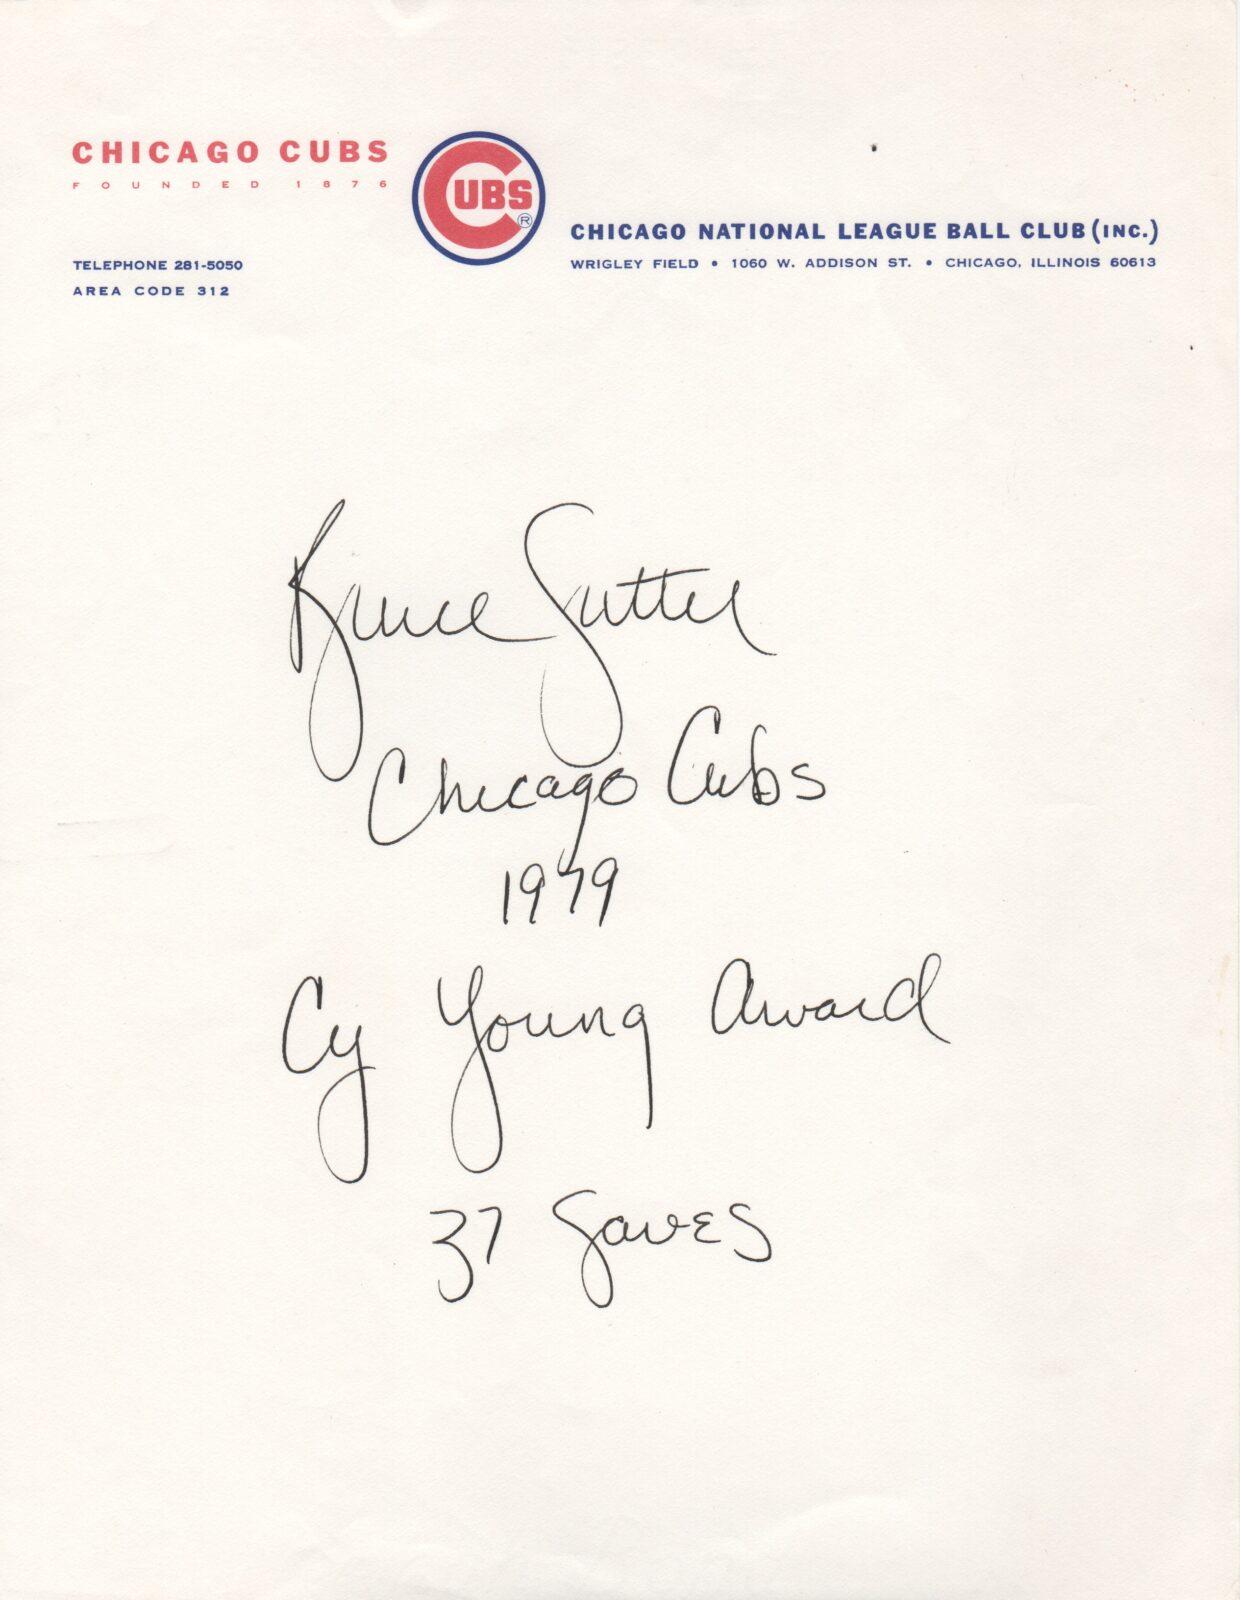 CHICAGO CUBS
FOUNDED 1876
CUBS ®
TELEPHONE 281-5050
AREA CODE 312
CHICAGO NATIONAL LEAGUE BALL CLUB (INC.)
WRIGLEY FIELD • 1060 W. ADDISON ST. • CHICAGO, ILLINOIS 60613
Bruce Sutter
Chicago Cubs
1979
Cy Young Award
37 Saves